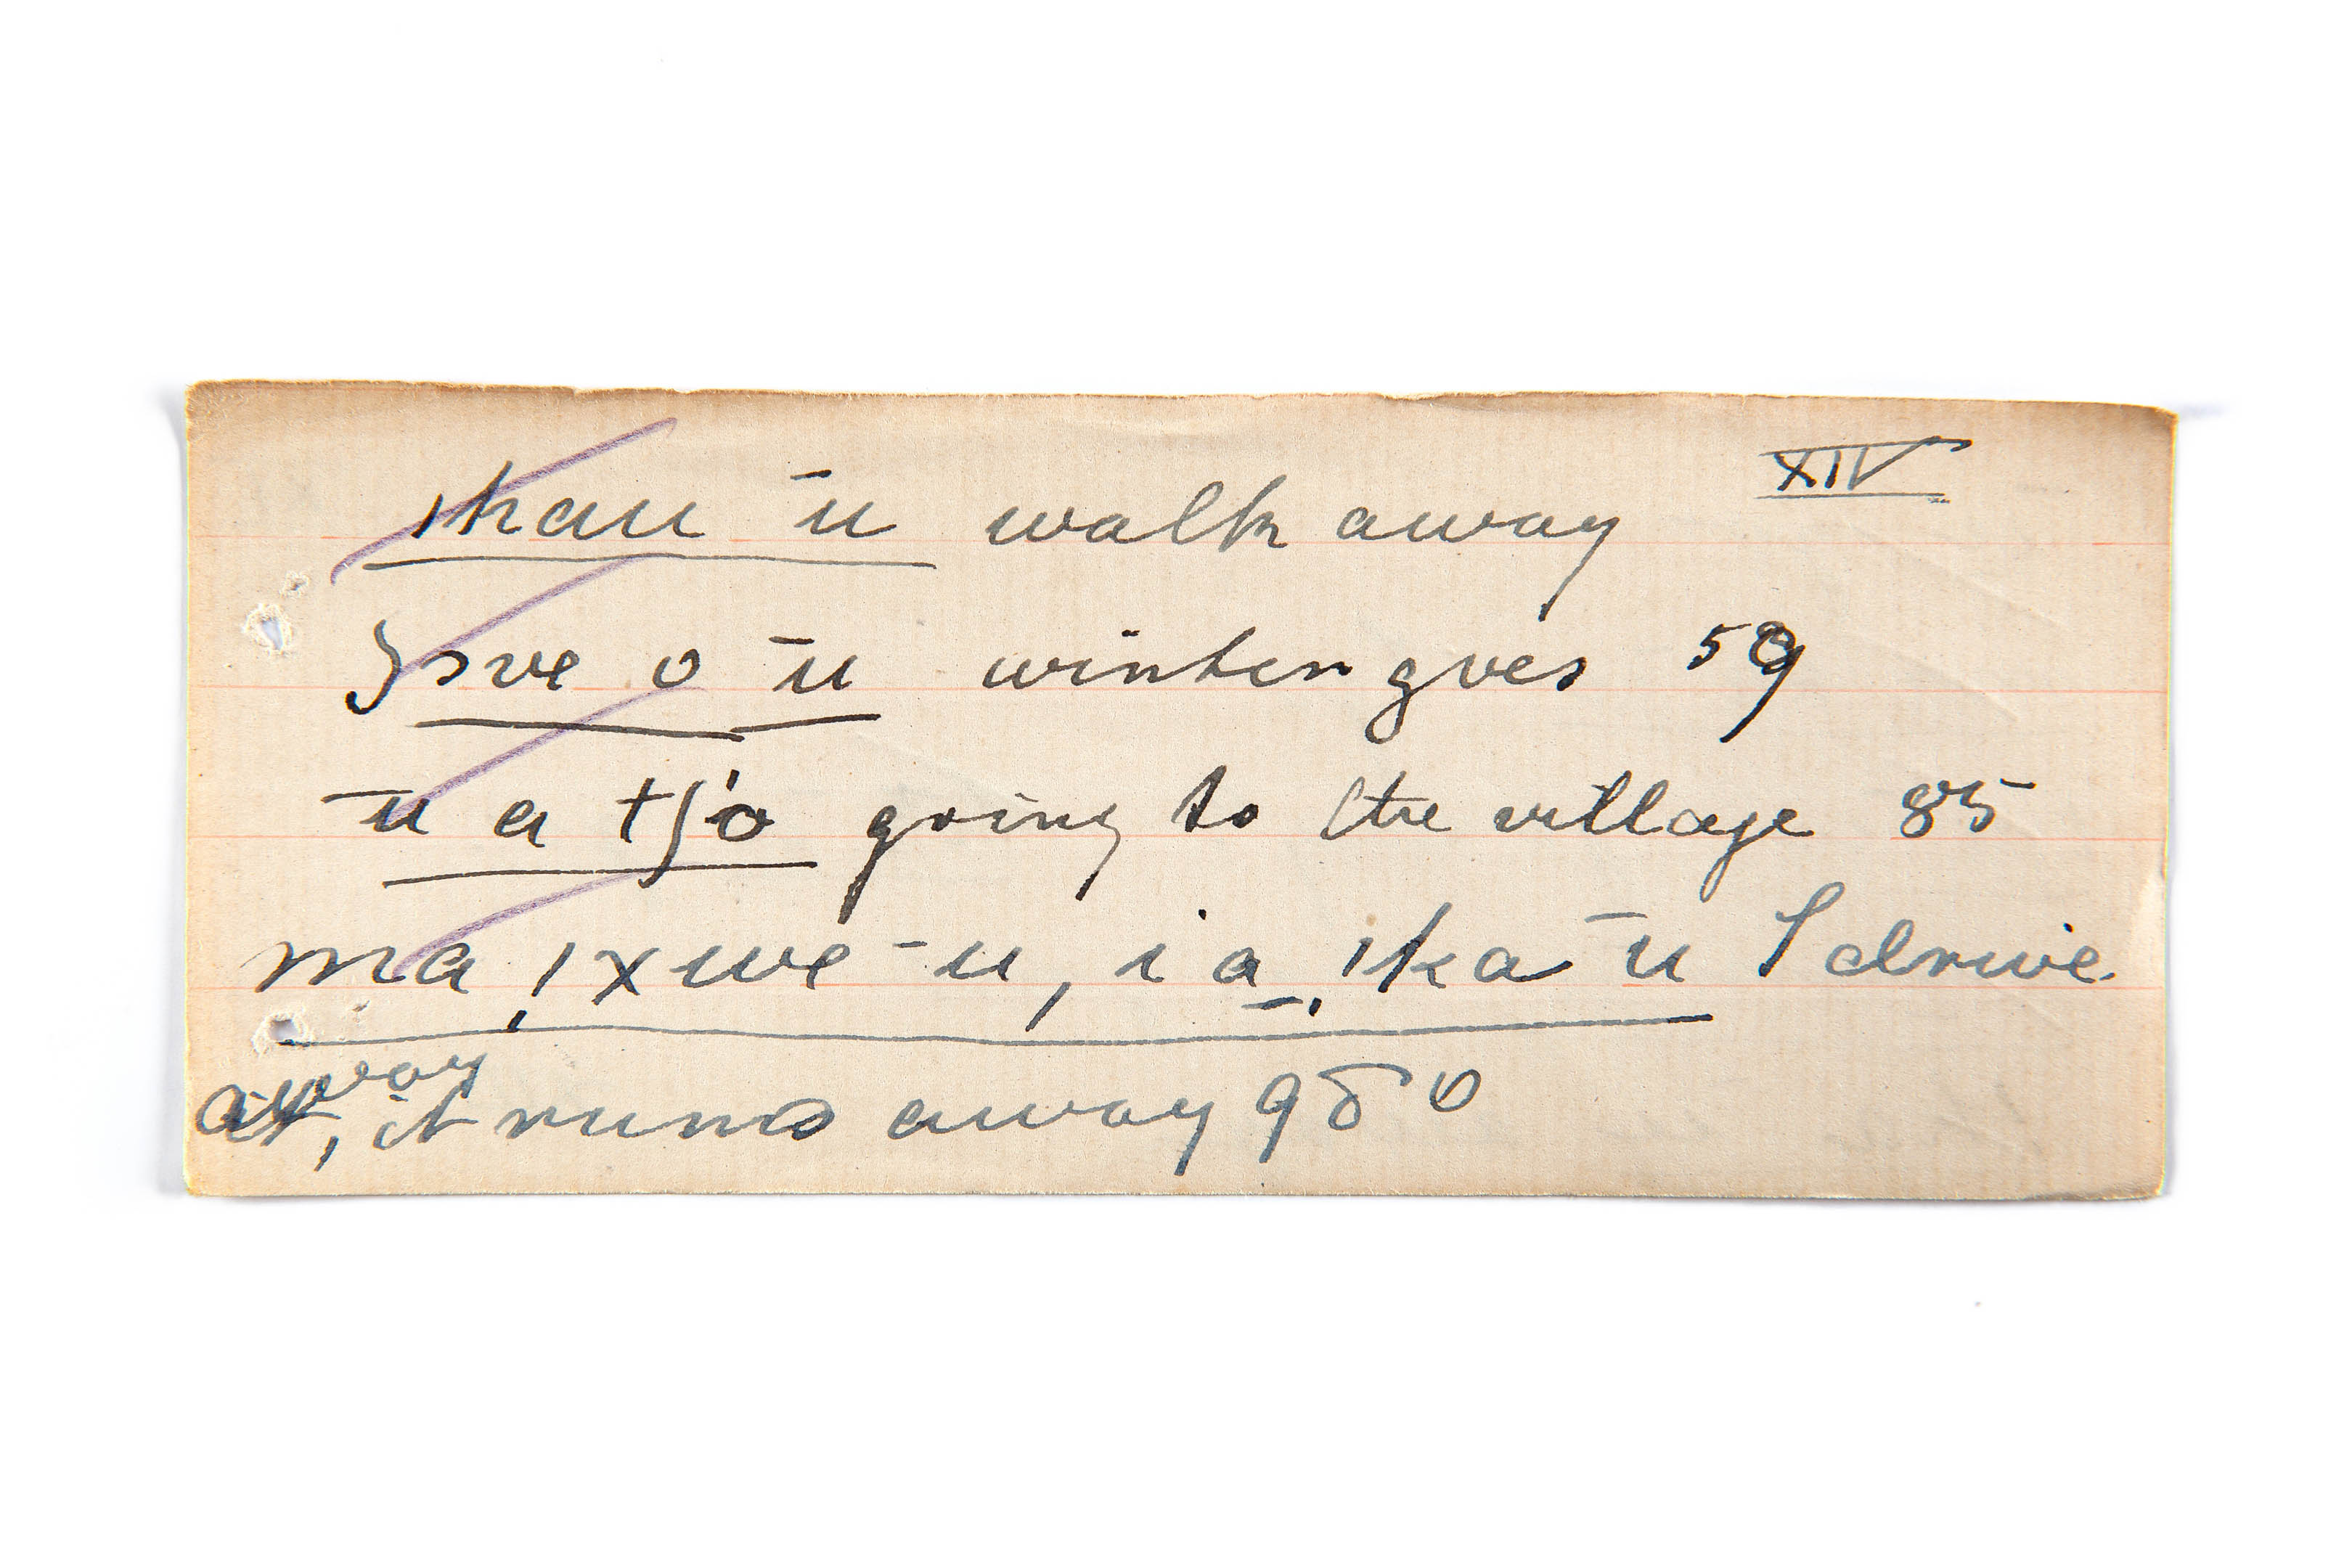 ıkau ū walk away XIV
ʒıve o ū winter goes 59
ū a tʃ'o going to the village 85
ma ˌıxwe ū, i a̱ ˌıka ū I drive
away, it runs away 95 0